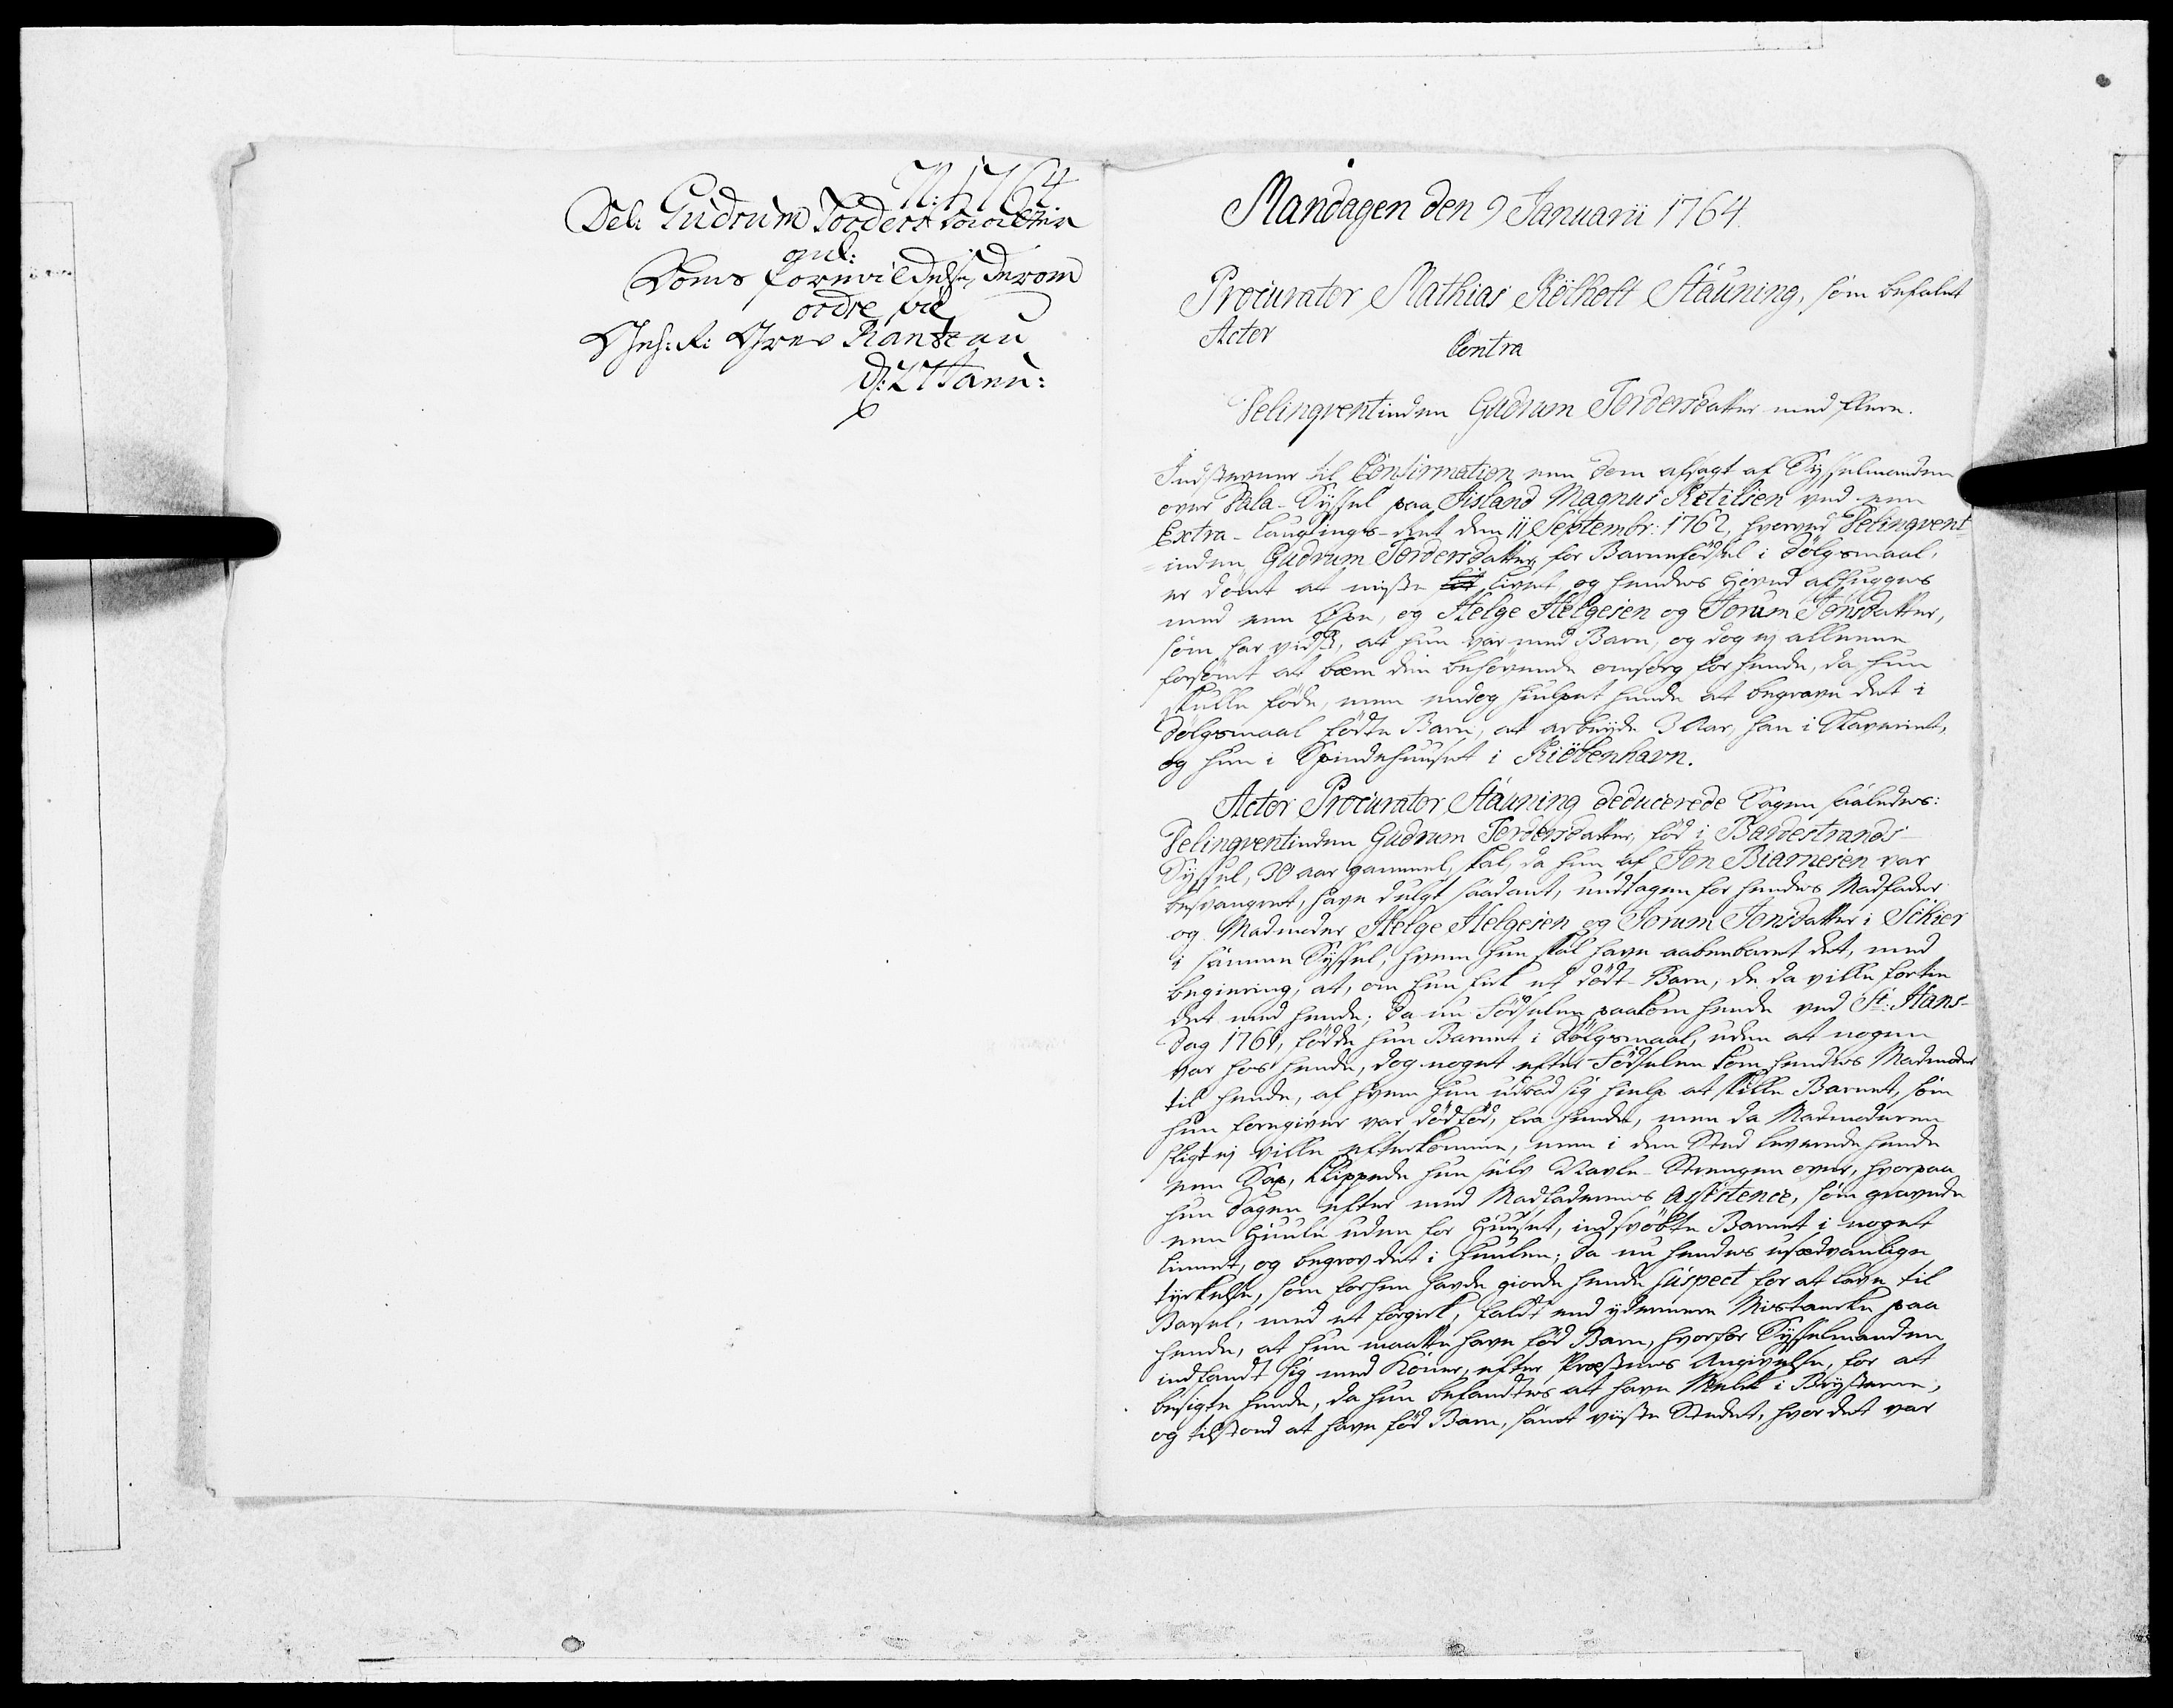 N: 1764
Del: Gudrum Torders Daatter
anl:
Doms formildelse, derom
ordre til
Geh: R: Grev Rantzau
d: 27 Janu:
Mandagen den 9 Januarii 1764.
Procurator Mathias Rölheft Stauning, som befalet
Actor
Contra
Delinqventinden Gudrum Tordersdatter med flere.
Indstevner til Confirmation een Dom afsagt af Sysselmanden
over Dala-Syssel paa Iisland Magnus Ketilsen ved een
Extra-Laugtings-Ret den 11 Septembr: 1762, hvorved Delinqvent-
=inden Gudrum Tordersdatter for Barnefödsel i Dölgsmaal,
er dömt at miste livet og hendes Hoved afhugges
med een Öxe, og Helge Helgesen og Jorum Jonsdatter,
som har vidst, at hun var med Barn, og dog ej alleene
forsömt at bære den behövende omsorg for hende, da hun
skulle föde, men endog hiulpet hende at begrave det i
Dölgsmaal födte Barn, at arbejde 3 Aar, han i Slaveriet,
og hun i Spindehuuset i Kiöbenhavn.
Actor Procurator Stauning deducerede Sagen saaledes:
Delinqventinden Gudrum Tordersdatter, föd i Bardestrands-
Syssel, 30 aar gammel, skal, da hun af Jon Biarnesen var
besvangret, have dulgt saadant, undtagen for hendes Madfader
og Madmoder Helge Helgesen og Jorum Jonsdatter i Sickier
i samme Syssel, hvem hun skal have aabenbaret det, med
begiering, at, om hun fik et dödt Barn, de da ville fortie
det med hende; da nu Födselen paakom hende ved St: Hans-
Dag 1761, födde hun Barnet i Dölgsmaal, uden at nogen
var hos hende, dog noget efter Födselen kom hendes Madmoder
til hende, af hvem hun udbad sig hielp at skille Barnet, som
hun foregiver var dödföd, fra hende, men da Madmoderen
sligt ej ville efterkomme, men i den Sted leverede hende
een Sax, klippede hun selv Navle-Strengen over, hvorpaa
hun Dagen efter med Madfaderens Assistence, som gravede
een Huule uden for Huuset, indsvöbte Barnet i noget
linnet, og begrov det i Huulen; da nu hendes usædvanlige
tyckelse, som forhen havde giorde hende suspect for at lave til
Barsel, med et forgick, faldt end ydermere Mistancke paa
hende, at hun maatte have föd Barn, hvorfor Sysselmanden
indfandt sig med Koner, efter Præstens Angivelse, for at
besigte hende, da hun befandtes at have Melk i Brysterne,
og tilstood at have föd Barn, samt viiste Stedet, hvor det var